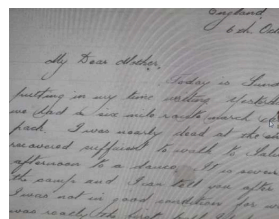 England
6th Oct
My Dear Mother,
Today is Sund
putting in my time writing yesterd
we had a six mile route march
pack. I was nearly dead at the
recovered sufficient to walk to
afternoon to a dance. It is seven
the camp and I can tell you after
I was not in good condition for a
was really the first